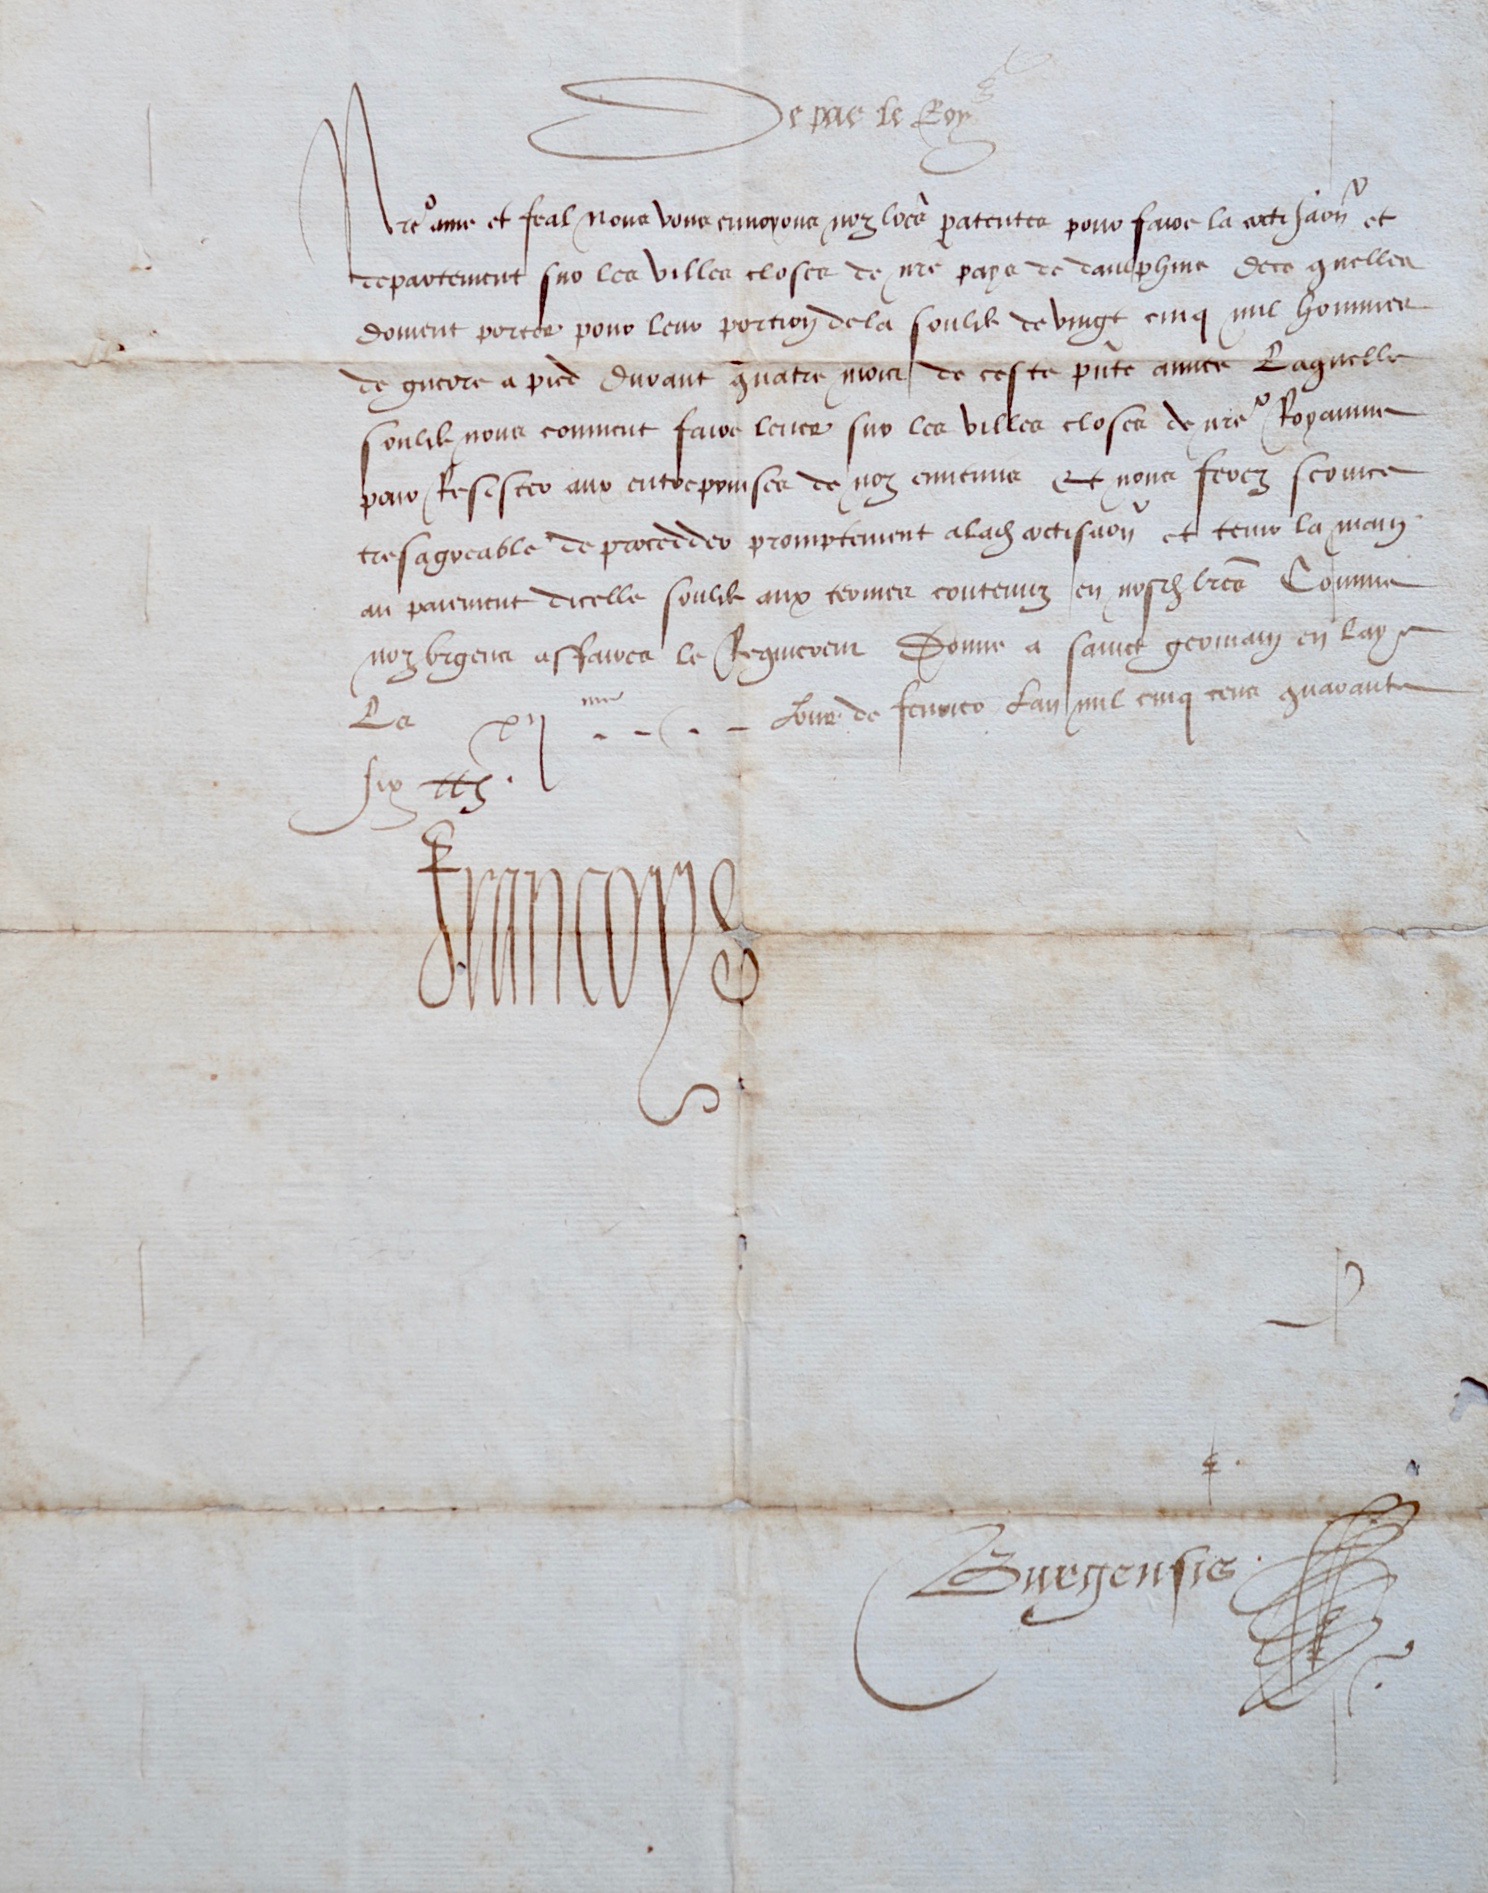 De par le Roy
Nre ame et feal Nous vous envoyons noz lrēs patentes pour faire la cotisaōn et
departement sur les villes closes de nrē pays de daulphine De ce quelles
doivent porter pour leur portion de la soulde de vingt cinq mil hommes
de guerre a pied Durant quatre mois de ceste pn̄te annee Laquelle
soulde nous convient faire lever sur les villes closes de nrē Royaume
pour Resister aux entreprinses de noz ennemis Et nous ferez service
tresagreable de procedder promptement a lad cotisaōn et tenir la main
au paiement dicelle soulde aux termes contenuz en nosd lrēs Comme
noz urgens affaires le Requierent Donne a sainct germain en Laye
Le xij me Jour de fevrier Lan mil cinq cens quarante
six
Francoys
Burgensis